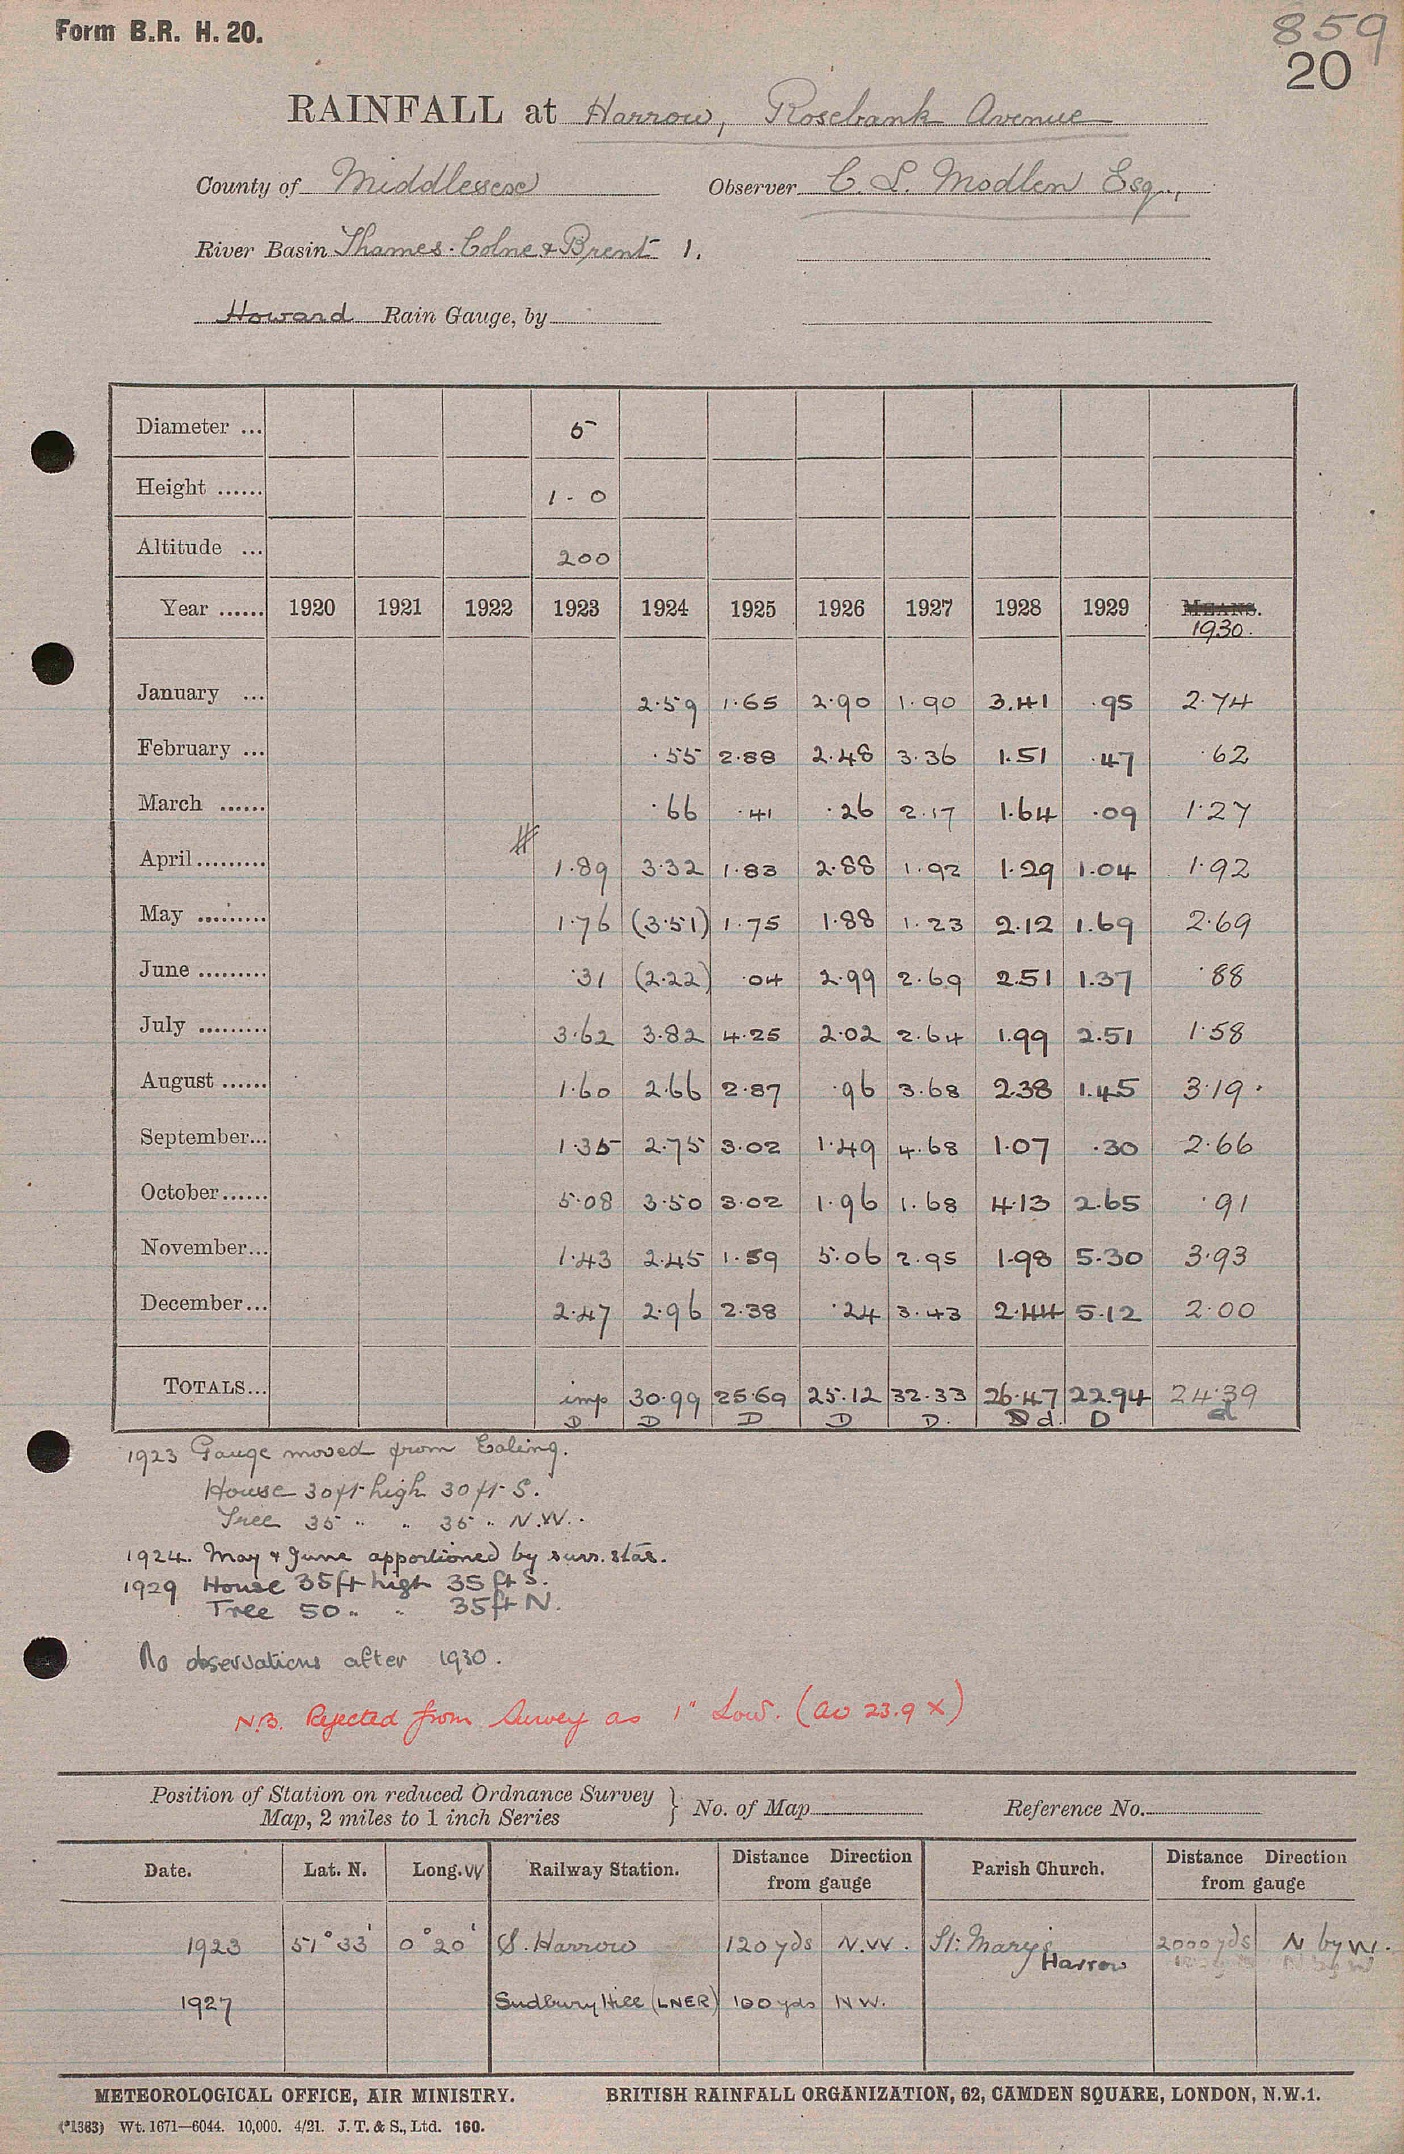 Form B.R. H. 20.
859
20
RAINFALL at Harrow, Rosebank Avenue
County of Middlesex Observer C. L. Modlen Esq.,
River Basin Thames. Colne & Brent 1.
Howard Rain Gauge, by
Diameter ... 5
Height ...... 1 - 0
Altitude ... 200
Year ...... 1920 1921 1922 1923 1924 1925 1926 1927 1928 1929 MEANS.
1930.
January ... 2.59 1.65 2.90 1.90 3.41 .95 2.74
February ... .55 2.88 2.48 3.36 1.51 .47 .62
March ...... .66 .41 .26 2.17 1.64 .09 1.27
April......... 1.89 3.32 1.83 2.88 1.92 1.29 1.04 1.92
May ......... 1.76 (3.51) 1.75 1.88 1.23 2.12 1.69 2.69
June ......... .31 (2.22) .04 2.99 2.69 2.51 1.37 .88
July ......... 3.62 3.82 4.25 2.02 2.64 1.99 2.51 1.58
August ...... 1.60 2.66 2.87 .96 3.68 2.38 1.45 3.19.
September... 1.35 2.75 3.02 1.49 4.68 1.07 .30 2.66
October...... 5.08 3.50 3.02 1.96 1.68 4.13 2.65 .91
November... 1.43 2.45 1.59 5.06 2.95 1.98 5.30 3.93
December... 2.47 2.96 2.38 .24 3.43 2.44 5.12 2.00
TOTALS... imp 30.99 25.69 25.12 32.33 26.47 22.94 24.39
D D D D D. D d. D d
1923 Gauge moved from Ealing.
House 30ft high 30ft S.
Tree 35 " " 35 " N.W.
1924. May & June apportioned by surr. stas.
1929 House 35ft high 35ft S.
Tree 50 " " 35ft N.
No observations after 1930.
N.B. Rejected from Survey as 1" Low. (av 23.9 x)
Position of Station on reduced Ordnance Survey
Map, 2 miles to 1 inch Series } No. of Map Reference No.
Date. Lat. N. Long. W Railway Station. Distance Direction from gauge Parish Church. Distance Direction from gauge
1923 51° 33' 0° 20' S. Harrow 120 yds N.W. St. Mary's Harrow 2000 yds N by W.
1927 Sudbury Hill (LNER) 100 yds N W.
METEOROLOGICAL OFFICE, AIR MINISTRY. BRITISH RAINFALL ORGANIZATION, 62, CAMDEN SQUARE, LONDON, N.W.1.
(*1363) Wt. 1671—6044. 10,000. 4/21. J. T. & S., Ltd. 160.